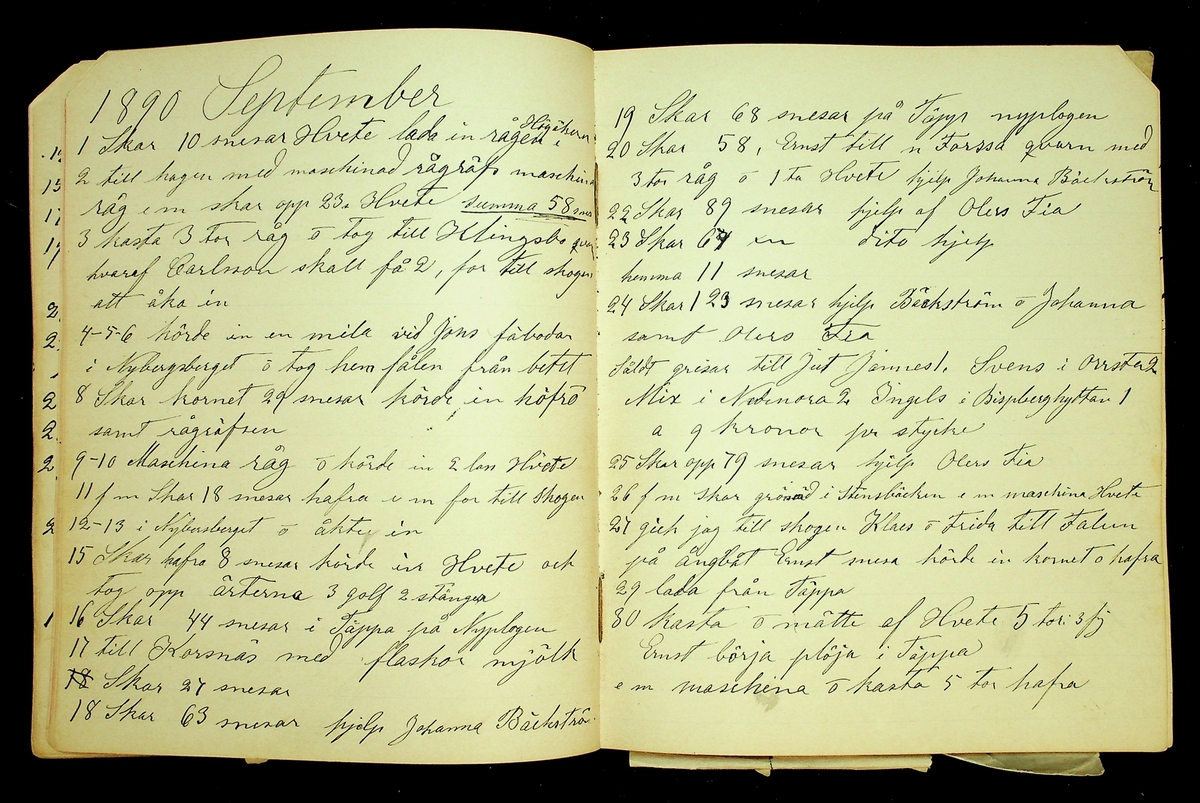 1890 September
1 Skar 10 snesar Hvete lada in rågen i
2 till hagen med maschinad rågräfs maschina
råg e m skar opp 23 Hvete summa 58 snes
3 kasta 3 tor råg o tog till Klingsbo qvar
hvaraf Carlsson skall få 2, for till skogen
att åka in
4-5-6 körde in en mila vid Jons fäbodar
i Nybergsberget o tog hem fålen från betet
8 Skar kornet 29 snesar körde in höfrö
samt rågräfsen
9-10 Maschina råg o körde in 2 las Hvete
11 f m Skar 18 snesar hafra e m for till skogen
12-13 i Nybersberget o åkte in
15 Skar hafra 8 snesar körde in Hvete och
tog opp ärterna 3 golf 2 stänger
16 Skar 44 snesar i Täppa på Nyplogen
17 till Korsnäs med flaskor mjölk
18 Skar 27 snesar
18 Skar 63 snesar hjelp Johanna Bäckströ
19 Skar 68 snesar på Täppa nyplogen
20 Skar 58, Ernst till n Forssa qvarn med
3 tor råg o 1 ta Hvete hjelp Johanna Bäckström
22 Skar 89 snesar hjelp af Olers Fia
23 Skar 67 dito hjelp
hemma 11 snesar
24 Skar 123 snesar hjelp Bäckström o Johanna
samt Olers Fia
Såldt grisar till Jut Jannes 1. Svens i Orrsta 2
Mix i Nedernora 2 Ingels i Bispberghyttan 1
a 9 kronor pr stycke
25 Skar opp 79 snesar hjelp Olers Fia
26 f m skar i Stensbäcken e m maschina Hvete
27 gick jag till skogen Klaes o Frida till Falun
på ångbåt Ernst snesa körde in kornet o hafra
29 lada från Täppa
30 kasta o mätte af Hvete 5 tor: 3 fj
Ernst börja plöja i Täppa
e m maschina o kasta 5 tor hafra